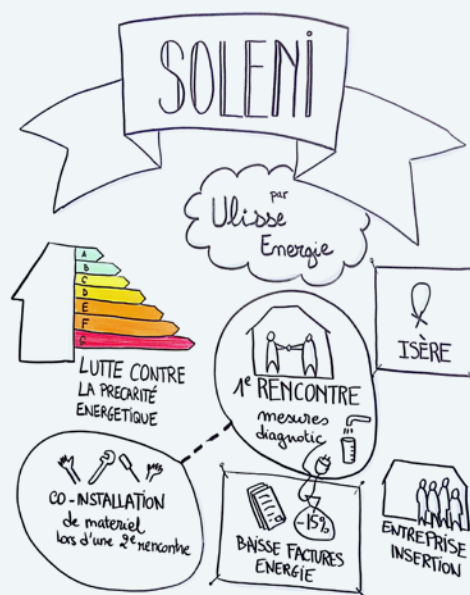 SOLENI
par
Ulisse
Energie
A
B
C
D
E
F
G
LUTTE CONTRE
LA PRECARITÉ
ENERGETIQUE
ISÈRE
1e RENCONTRE
mesures
diagnotic
CO-INSTALLATION
de materiel
lors d'une 2e rencontre
-15%
BAISSE FACTURES
ENERGIE
ENTREPRISE
INSERTION